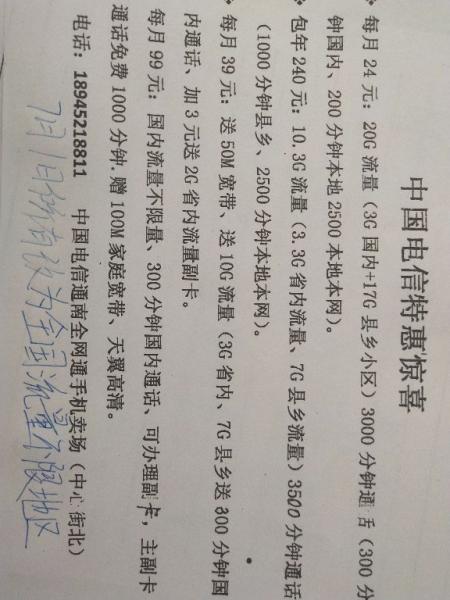 中国电信特惠惊喜
每月 24 元: 20G 流量 (3G 国内+17G 县乡小区) 3000 分钟通 舌 (300 分
钟国内、200 分钟本地 2500 本地本网)。
包年 240 元: 10.3G 流量 (3.3G 省内流量、7G 县乡流量) 3500 分钟通话
(1000 分钟县乡、2500 分钟本地本网)。
每月 39 元: 送 50M 宽带、送 10G 流量 (3G 省内、7G 县乡送 300 分钟国
内通话、加 3 元送 2G 省内流量副卡。
每月 99 元: 国内流量不限量、300 分钟国内通话、可办理副卡, 主副卡
通话免费 1000 分钟.赠 100M 家庭宽带、天翼高清。
电话: 18945218811 中国电信通南全网通手机卖场 (中心街北)
7月1日所有改为全国流量不限地区